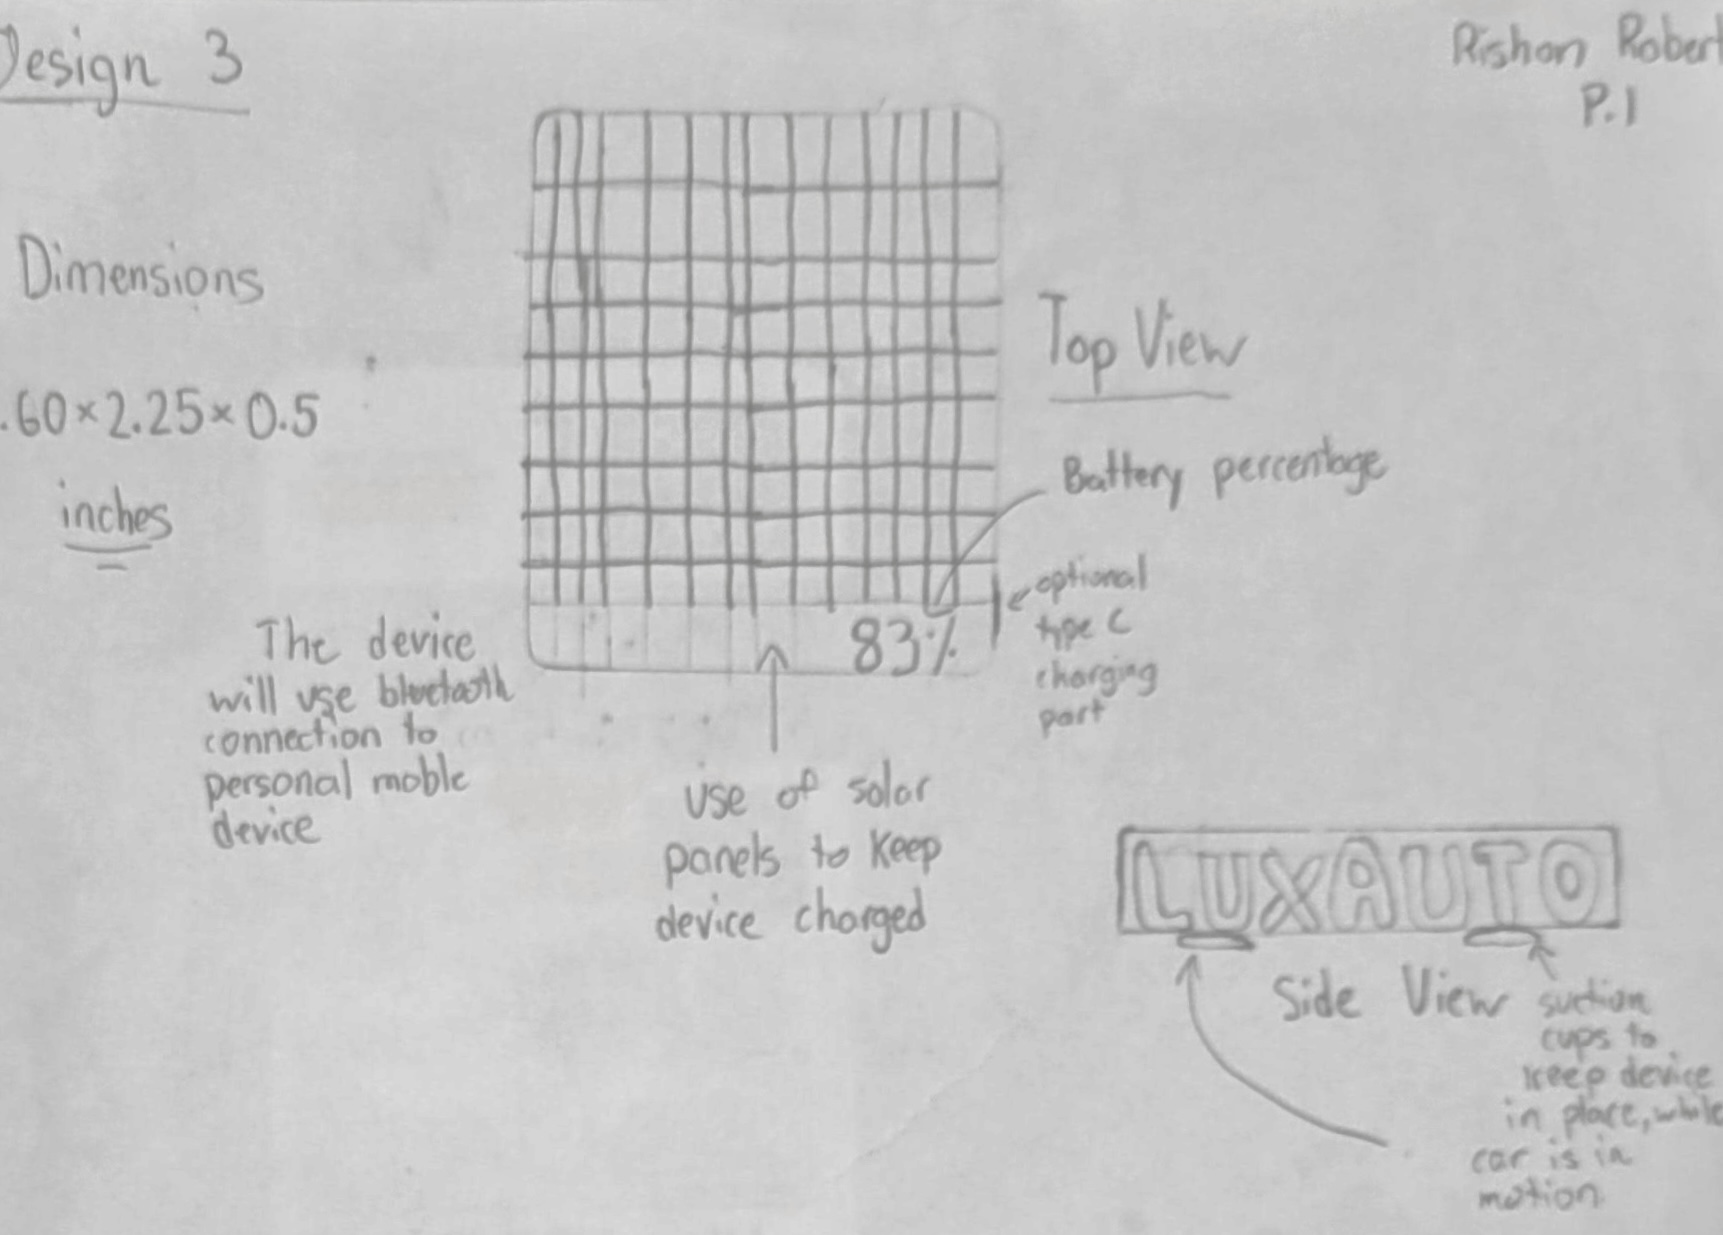 Design 3
Rishon Robert
P.1
Dimensions
.60×2.25×0.5
inches
Top View
Battery percentage
optional
type C
charging
port
83%
The device
will use bluetooth
connection to
personal moble
device
use of solar
panels to keep
device charged
LUXAUTO
Side View
suction
cups to
keep device
in place, while
car is in
motion